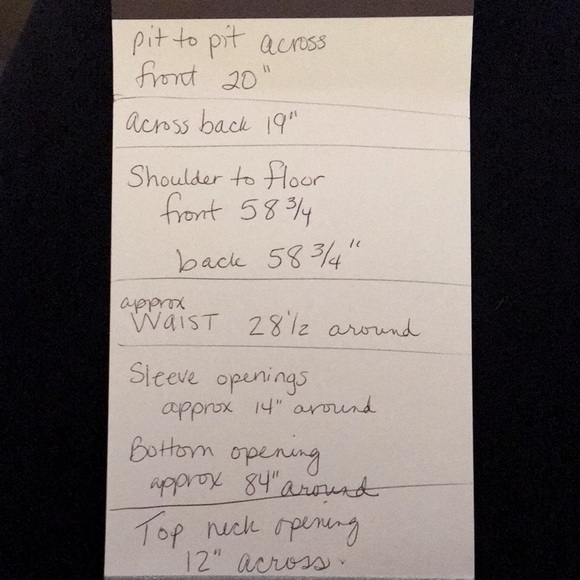 pit to pit across
front 20"
across back 19"
Shoulder to floor
front 58 3/4
back 58 3/4"
approx
Waist 28 1/2 around
Sleeve openings
approx 14" around
Bottom opening
approx 84" around
Top neck opening
12" across.